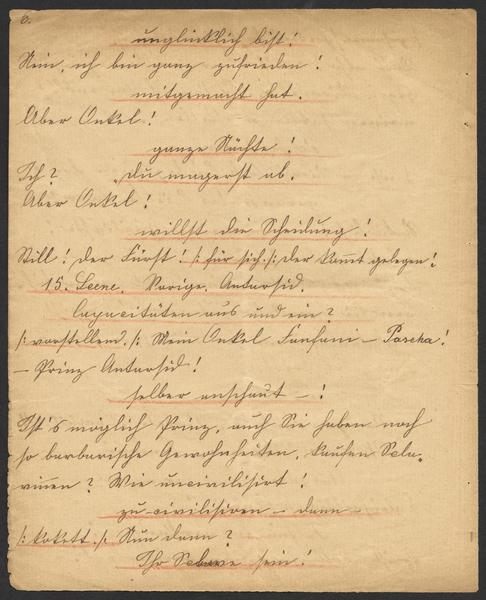 6.
unglücklich bist!
Nein, ich bin ganz zufrieden!
mitgemacht hat.
Aber Onkel!
ganze Nächte!
Ich? Du magerst ab.
Aber Onkel!
willst die Scheidung!
Still! der Fürst! /: für sich :/ der kommt gelegen!
15. Scene. Vorige. Antarsid.
Capacitäten aus und ein?
/: vorstellend. /: Mein Onkel Fanfani – Pascha!
– Prinz Antarsid!
selber anschaut –!
Ist's möglich Prinz, auch Sie haben noch
so barbarische Gewohnheiten, kaufen Scla-
vinnen? Wie uncivilisirt!
zu civilisiren – dann –
/: kokett. /: Nun dann?
Ihr Sclave sein!